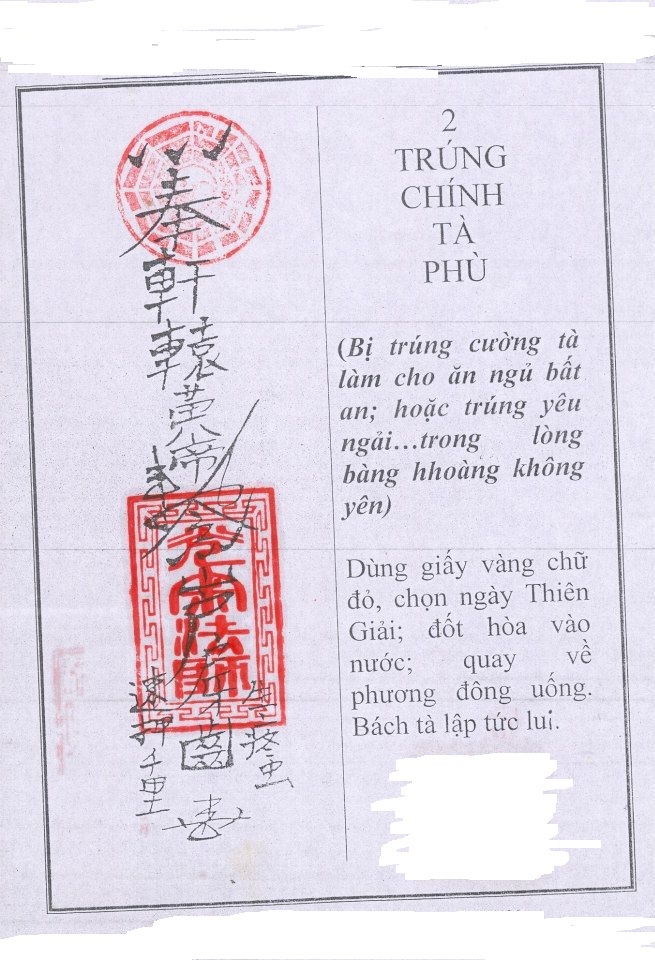 奉
軒
轅
黄
帝
法
師
生
齒
千
里
2
TRÚNG
CHÍNH
TÀ
PHÙ
(Bị trúng cường tà
làm cho ăn ngủ bất
an; hoặc trúng yêu
ngải…trong lòng
bàng hhoàng không
yên)
Dùng giấy vàng chữ
đỏ, chọn ngày Thiên
Giải; đốt hòa vào
nước; quay về
phương đông uống.
Bách tà lập tức lui.